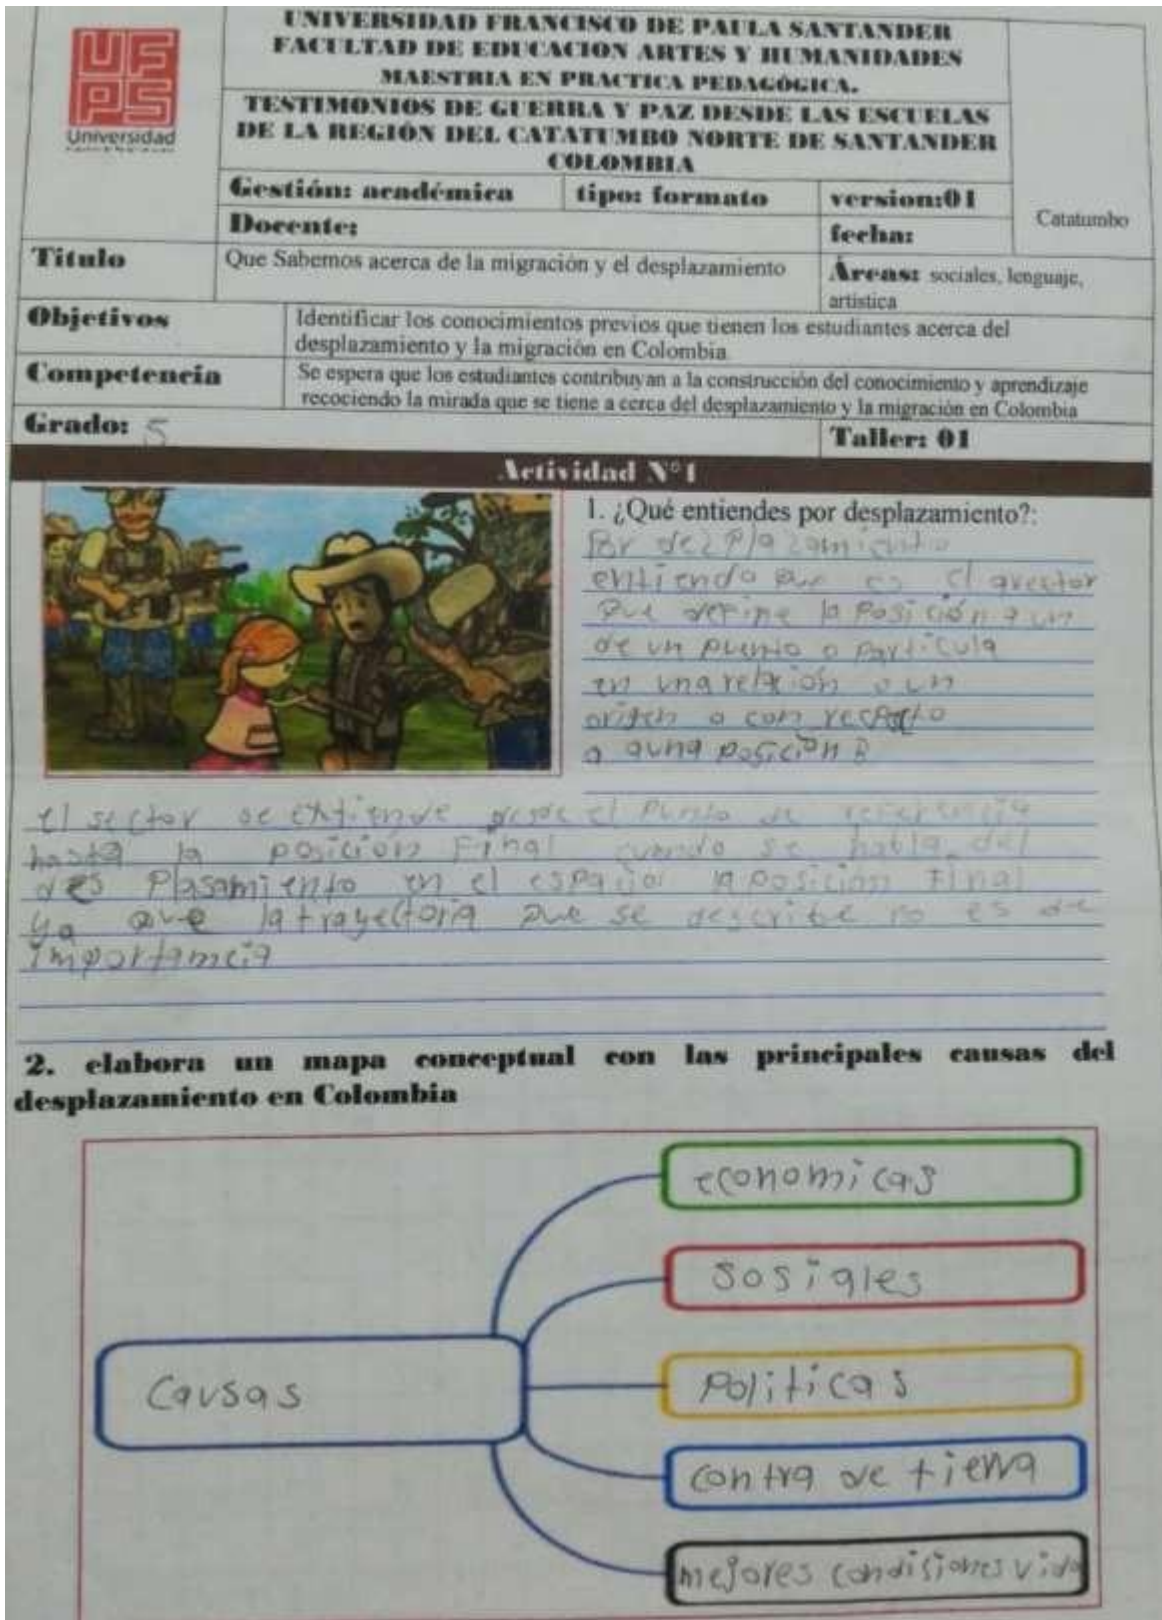 UNIVERSIDAD FRANCISCO DE PAULA SANTANDER
FACULTAD DE EDUCACION ARTES Y HUMANIDADES
MAESTRIA EN PRACTICA PEDAGÓGICA.
TESTIMONIOS DE GUERRA Y PAZ DESDE LAS ESCUELAS
DE LA REGIÓN DEL CATATUMBO NORTE DE SANTANDER
COLOMBIA
UFPS
Universidad
Gestión: académica tipo: formato version:01
Docente: fecha:
Catatumbo
Titulo Que Sabemos acerca de la migración y el desplazamiento Áreas: sociales, lenguaje,
artistica
Objetivos Identificar los conocimientos previos que tienen los estudiantes acerca del
desplazamiento y la migración en Colombia
Competencia Se espera que los estudiantes contribuyan a la construcción del conocimiento y aprendizaje
recociendo la mirada que se tiene a cerca del desplazamiento y la migración en Colombia
Grado: 5 Taller: 01
Actividad N°1
1. ¿Qué entiendes por desplazamiento?:
Por dezplazamiento
entiendo que es el
que define la posición
de un punto o particula
en una relación o un
origen o con respecto
a auna posición B
el sector se extiende desde el punto de referencia
hasta la posición Final cuando se habla del
des Plasamiento en el espacio la posición Final
ya que la trayectoria que se describe no es de
importamcia
2. elabora un mapa conceptual con las principales causas del
desplazamiento en Colombia
economicas
sosiales
Causas
politicas
contra de tierra
mejores condisiones vida